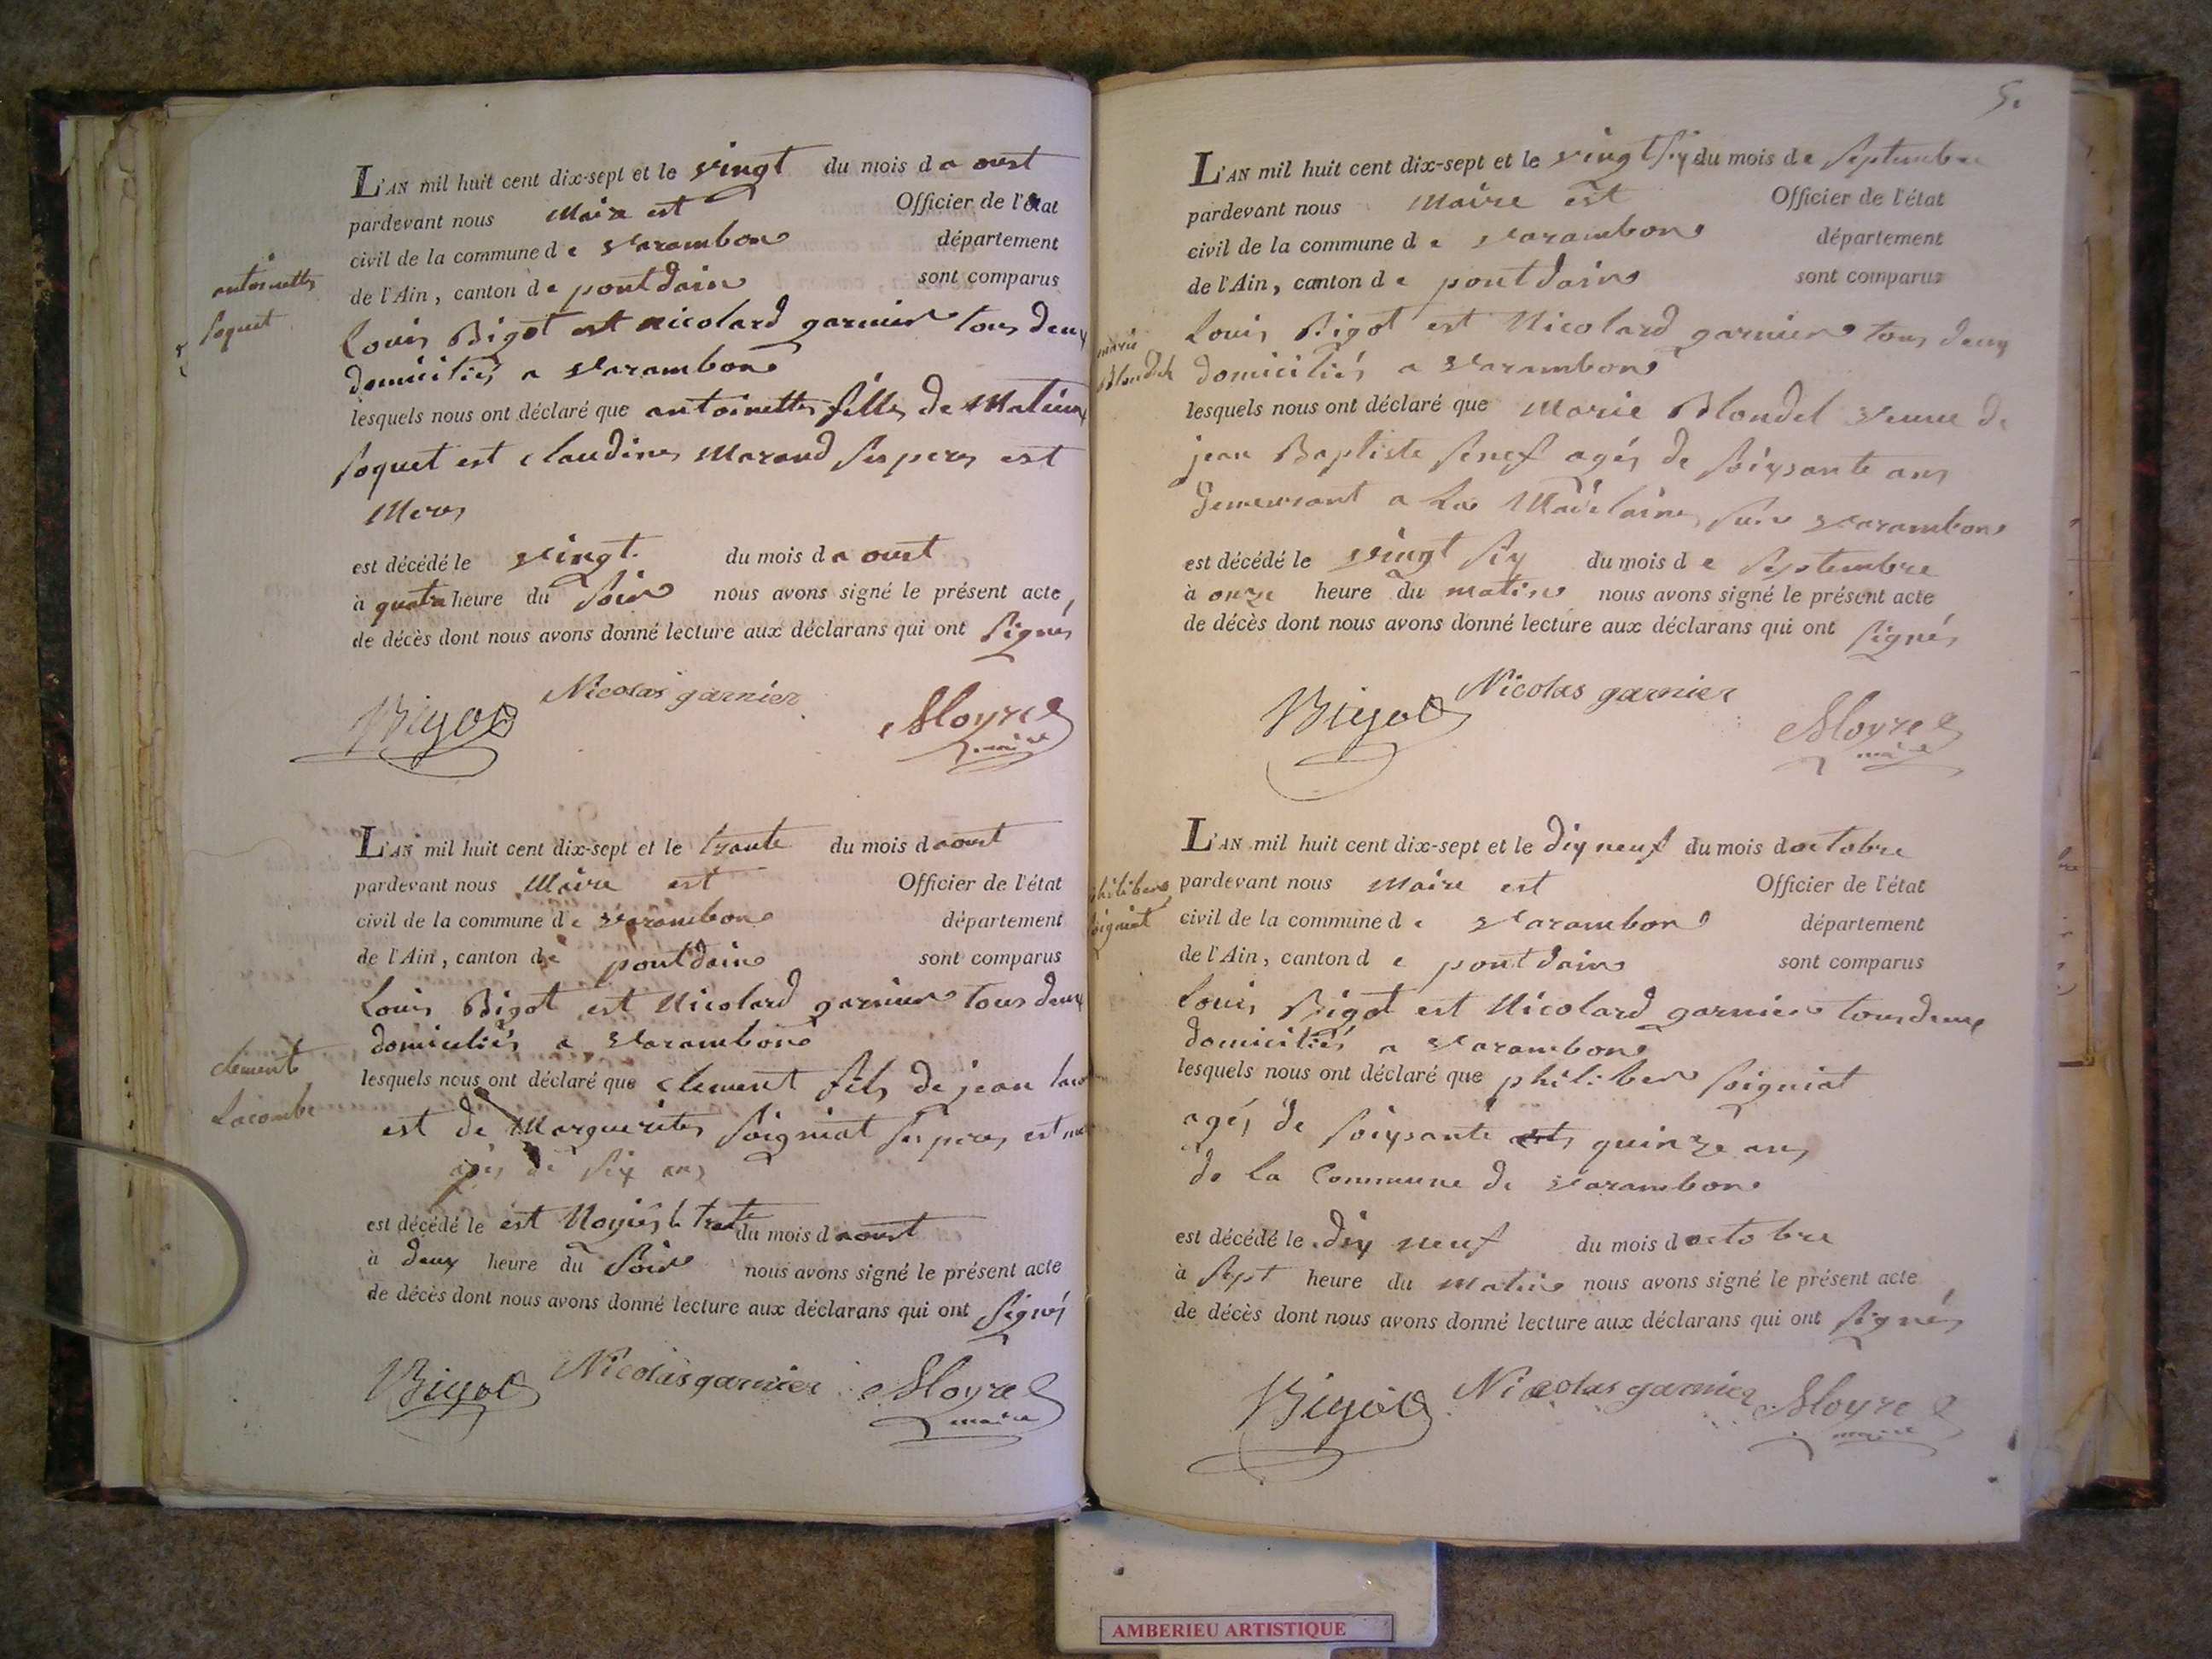 antoinette
foquet
L'AN mil huit cent dix-sept et le vingt du mois d aoust
pardevant nous Maire est Officier de l'état
civil de la commune de varambon département
de l'Ain, canton de pontdain sont comparus
Louis Bigot est nicolard garnier tous deux
domiciliés a varambon
lesquels nous ont déclaré que antoinette fille de Matieux
foquet est claudine Marand ses pere est
Mere
est décédé le vingt du mois d aoust
à quatre heure du soir nous avons signé le présent acte,
de décès dont nous avons donné lecture aux déclarans qui ont signés
Bigot Nicolas garnier Moyret
maire
clement
Lacombe
L'AN mil huit cent dix-sept et le trante du mois d aoust
pardevant nous Maire est Officier de l'état
civil de la commune de varambon département
de l'Ain, canton de pontdain sont comparus
Louis Bigot est Nicolard garnier tous deux
domiciliés a varambon
lesquels nous ont déclaré que clement fils de jean
est de Marguerite soigniat ses peres est
agés de six ans
est décédé le est Noyés le trante du mois d aoust
à deux heure du soir nous avons signé le présent acte
de décès dont nous avons donné lecture aux déclarans qui ont signés
Bigot Nicolas garnier Moyret
maire
5.
marie
Blondel
L'AN mil huit cent dix-sept et le vingt six du mois de septembre
pardevant nous Maire est Officier de l'état
civil de la commune de varambon département
de l'Ain, canton de pontdain sont comparus
Louis Bigot est Nicolard garnier tous deux
domiciliés a varambon
lesquels nous ont déclaré que Marie Blondel veuve de
jean Baptiste agés de soixante ans
demeurant a La Madelaine varambon
est décédé le vingt six du mois de septembre
à onze heure du matin nous avons signé le présent acte
de décès dont nous avons donné lecture aux déclarans qui ont signés
Bigot Nicolas garnier Moyret
maire
philiber
soigniat
L'AN mil huit cent dix-sept et le dix neuf du mois d octobre
pardevant nous Maire est Officier de l'état
civil de la commune de varambon département
de l'Ain, canton de pontdain sont comparus
Louis Bigot est Nicolard garnier tous deux
domiciliés a varambon
lesquels nous ont déclaré que philiber soigniat
agés de soixante quinze ans
de la Commune de varambon
est décédé le dix neuf du mois d octobre
à sept heure du matin nous avons signé le présent acte
de décès dont nous avons donné lecture aux déclarans qui ont signés
Bigot Nicolas garnier Moyret
maire
AMBERIEU ARTISTIQUE